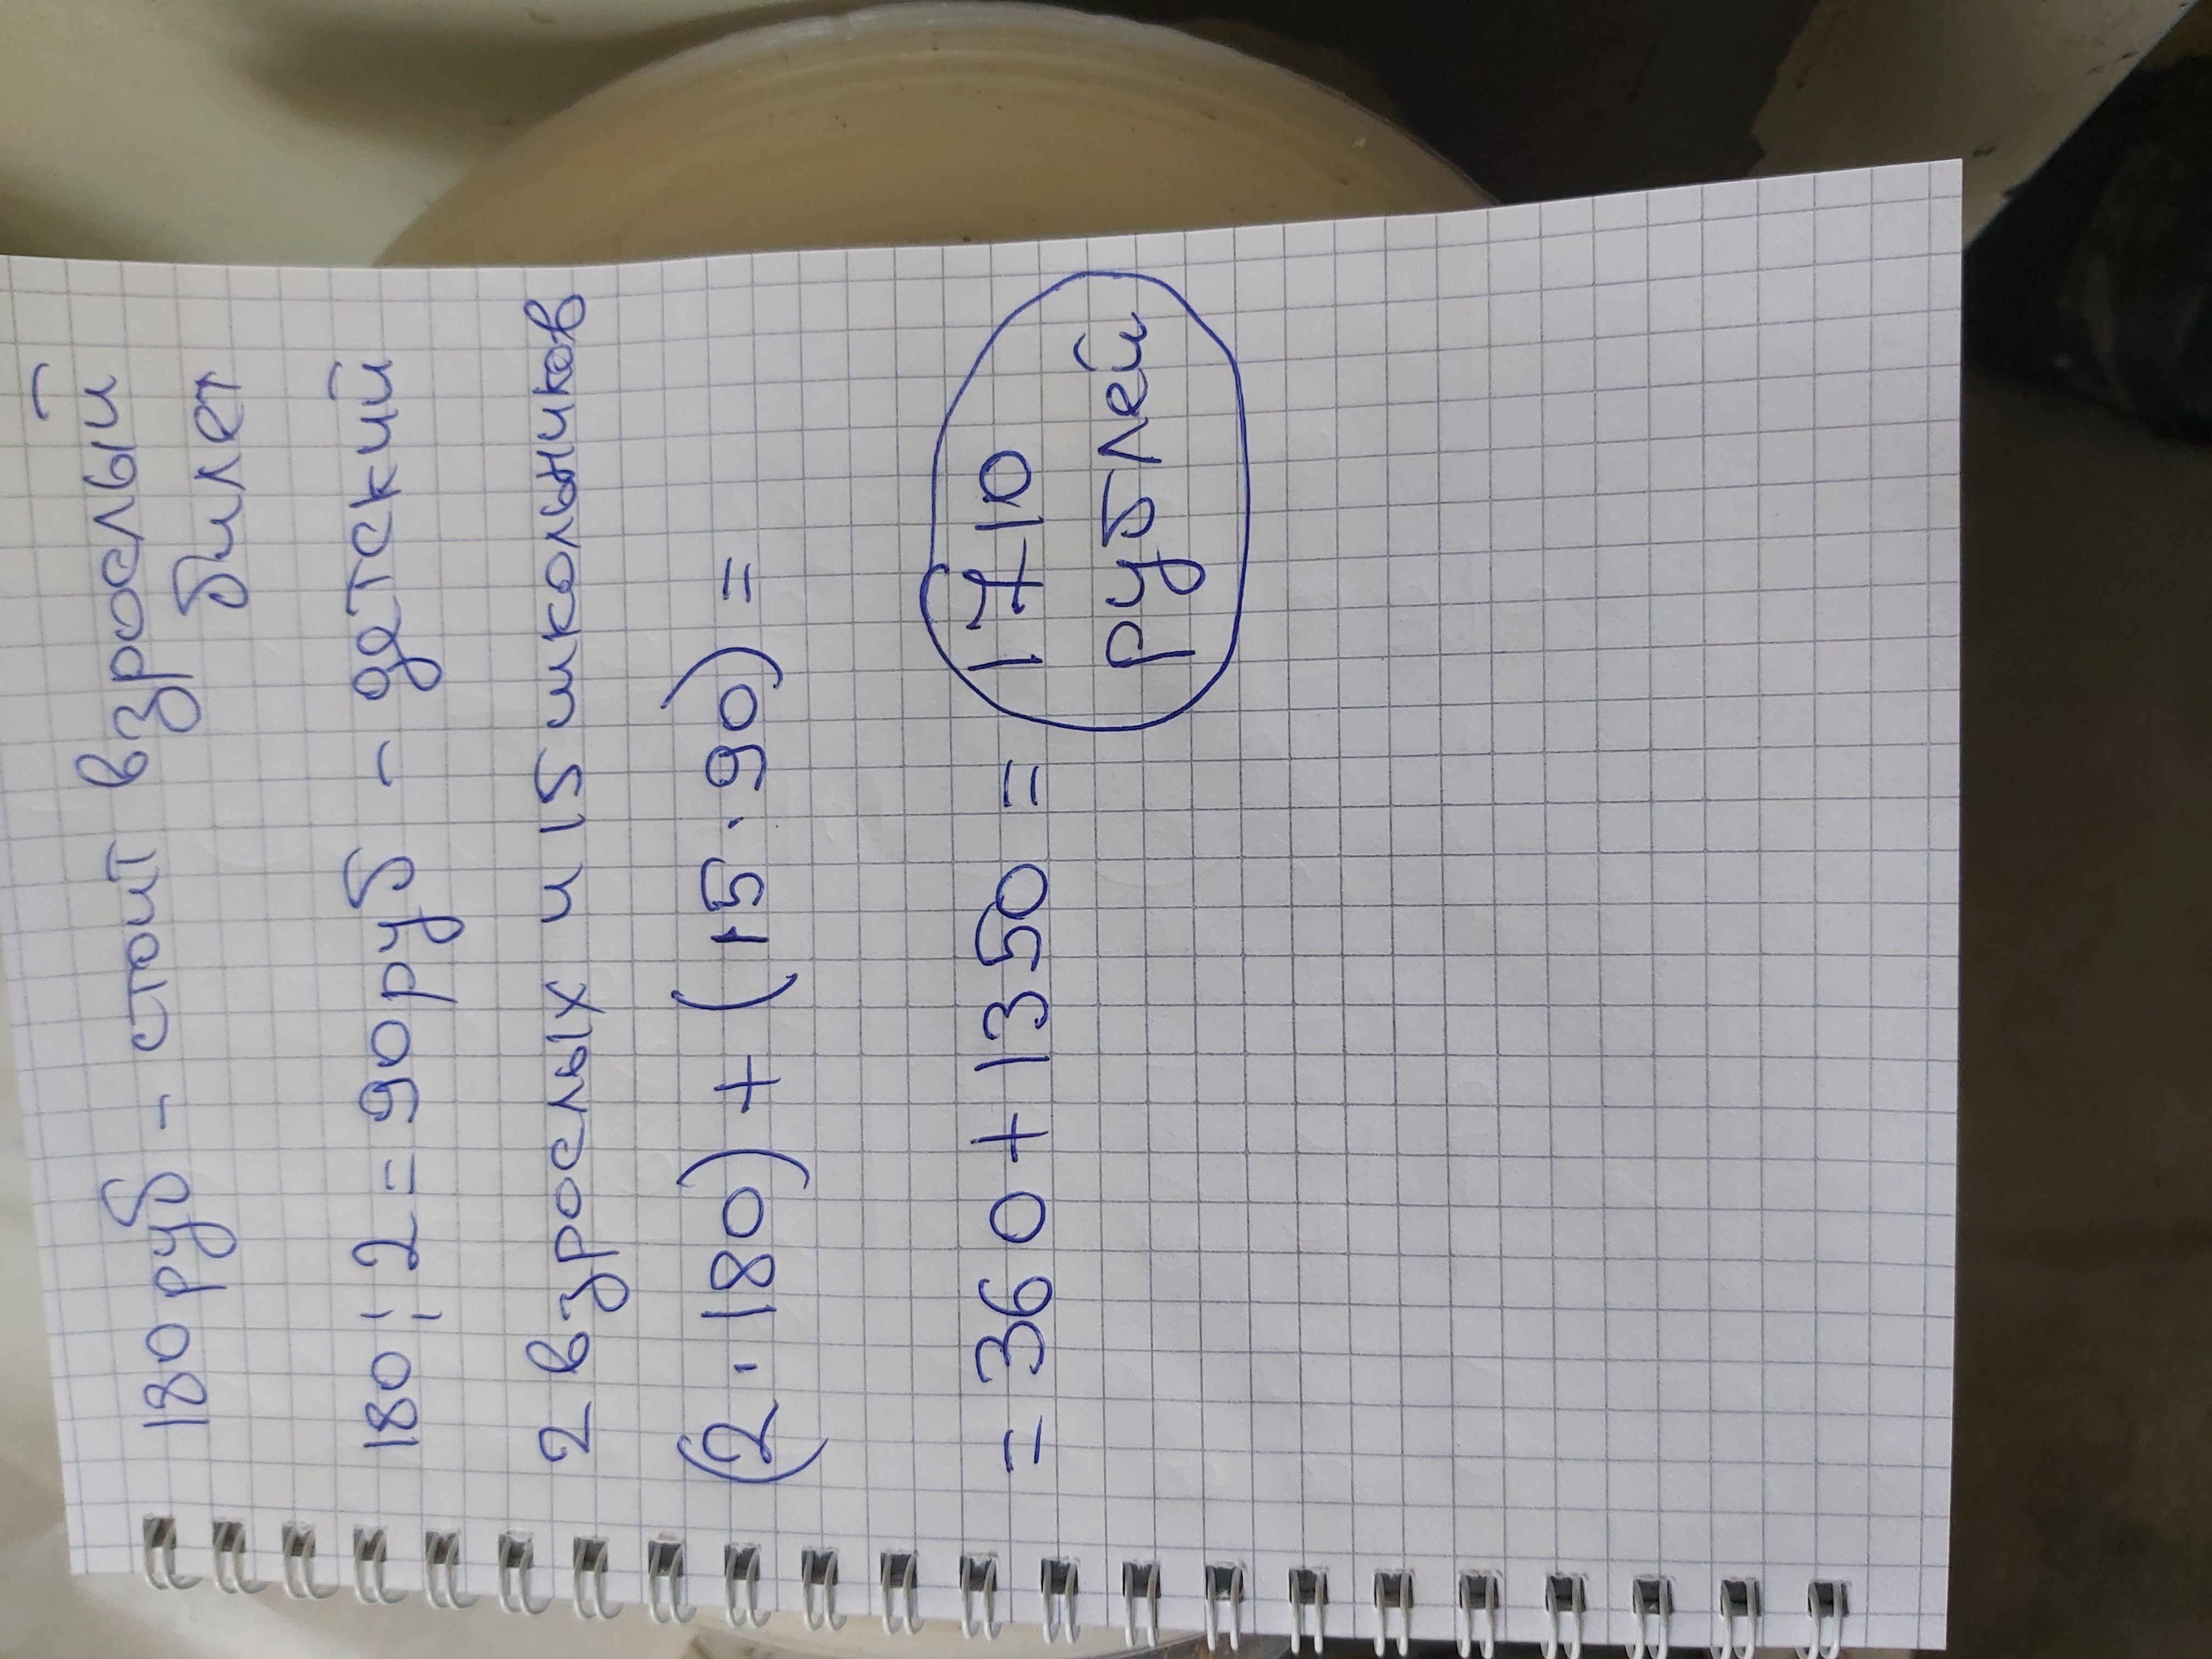 180 руб - стоит взрослый
билет
180 : 2 = 90 руб - детский
2 взрослых и 15 школьников
(2 · 180) + (15 · 90) =
= 360 + 1350 = 1710
рублей